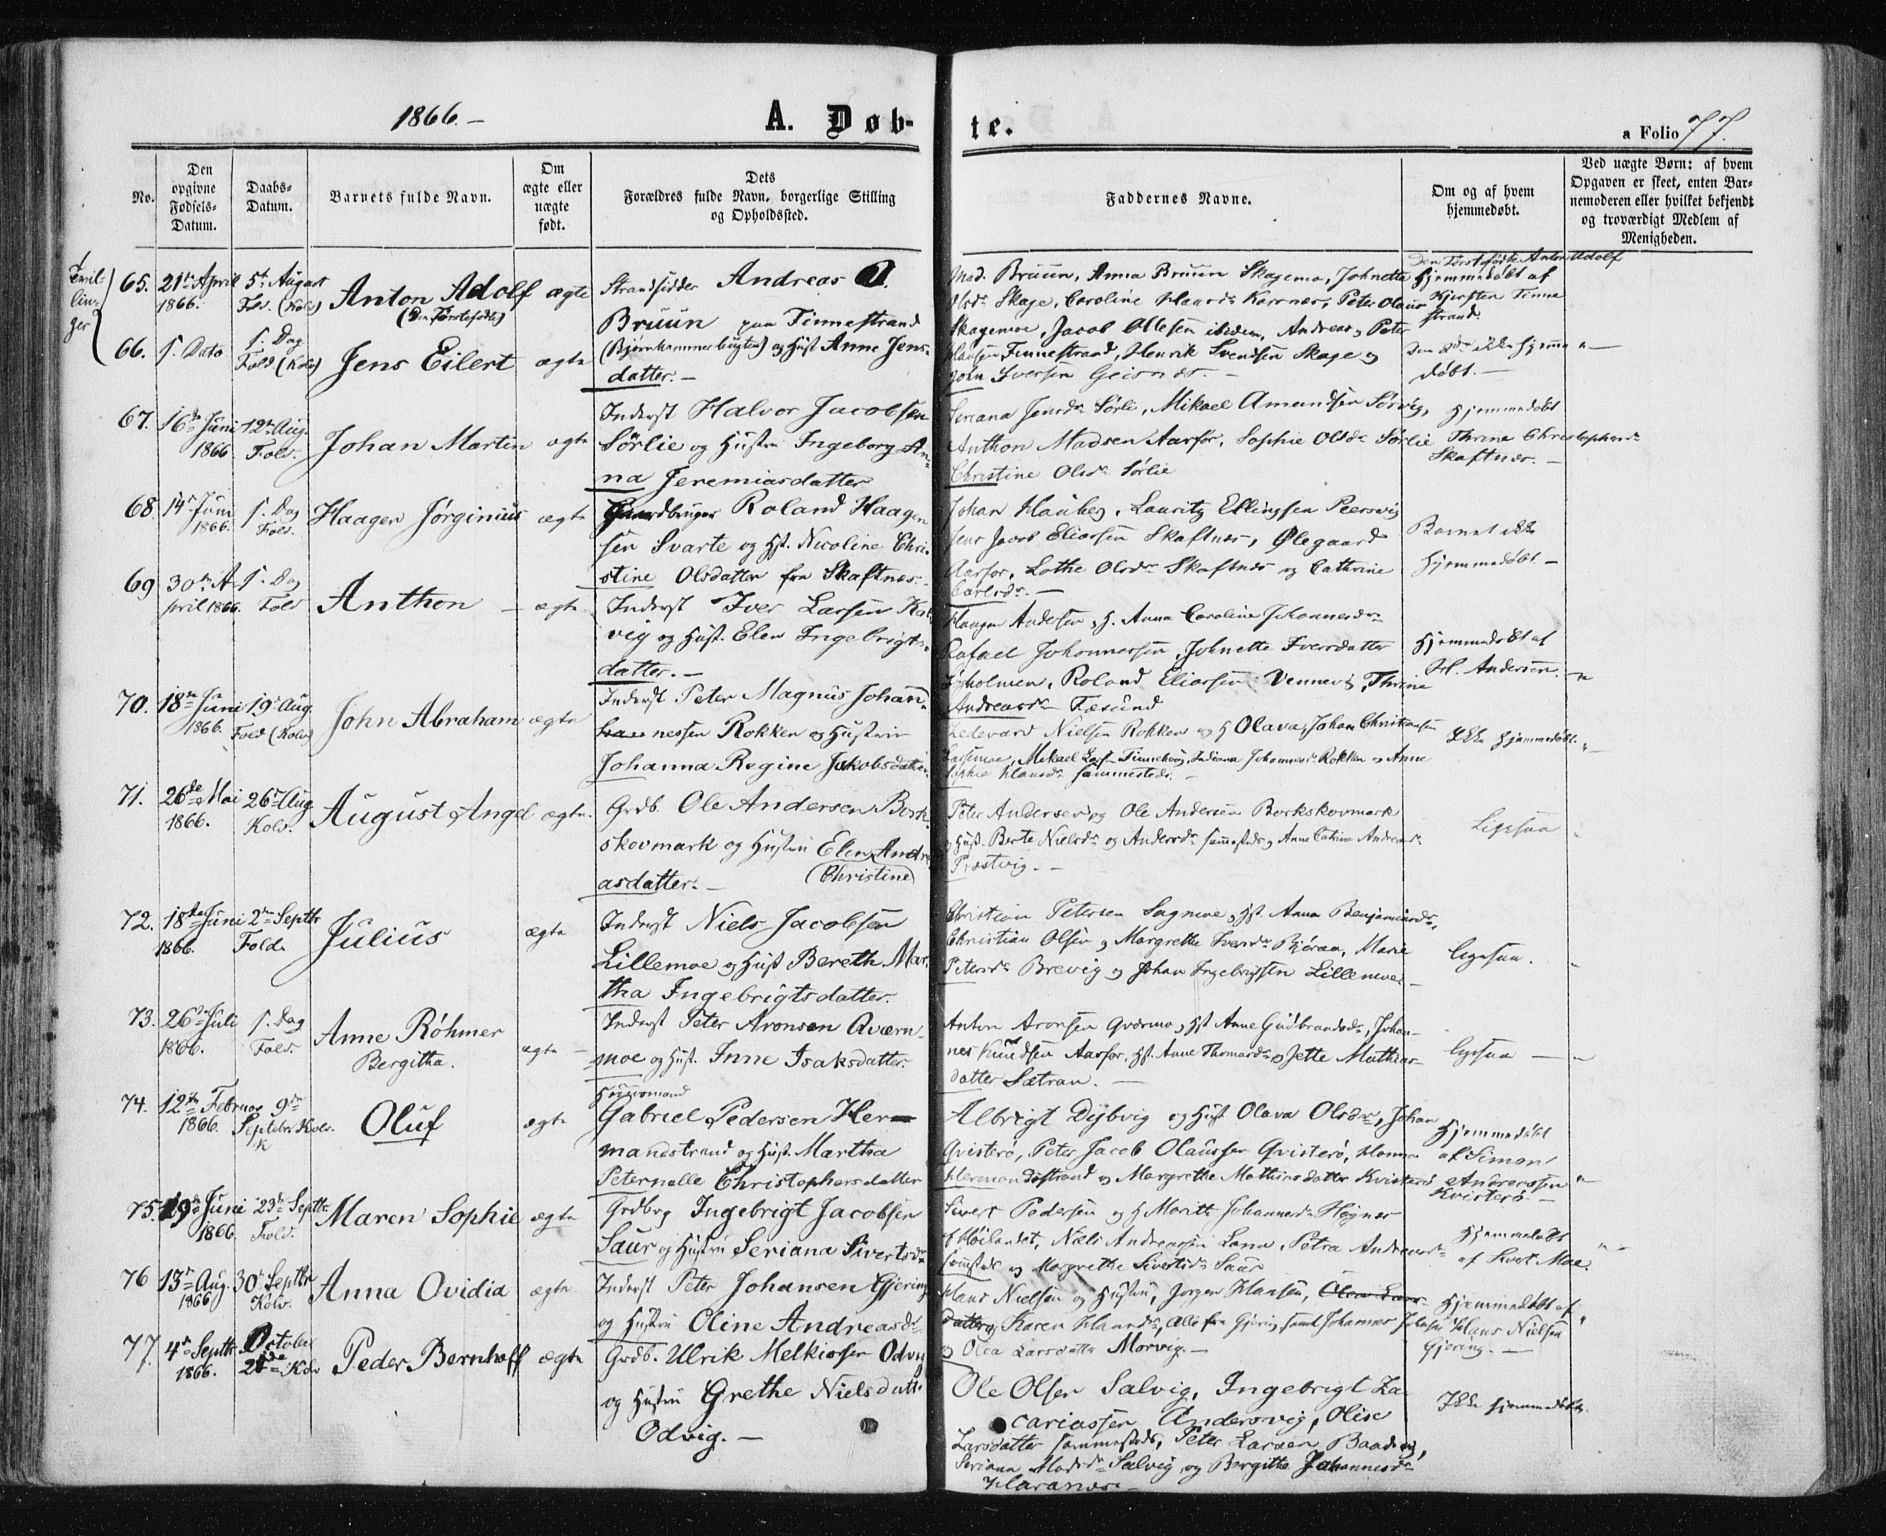 1866. —
A. Døbte.
a Folio 77.
No.
Den opgivne Fødsels-Datum.
Daabs-Datum.
Barnets fulde Navn.
Om ægte eller uægte født.
Dets Forældres fulde Navn, borgerlige Stilling og Opholdssted.
Faddernes Navne.
Om og af hvem hjemmedøbt.
Ved uægte Børn: af hvem Opgaven er skeet, enten Barnemoderen eller hvilket bekjendt og troværdigt Medlem af Menigheden.
Tvil-
lin-
ger
65. 21de April 1866. 5te August Fold. (Kolv) Anton Adolf (Den Førstefødte) ægte
Strandsidder Andreas
Bruun paa Finnestrand
(Bjørnhammerbugten) og Hust Anne Jens-
datter. —
Mad. Bruun, Anna Bruun Skagemo, Johnette
Olsdr Skage, Caroline Hansdr Karenæs, Peter Olaus
Skagemoe, Jacob Ollesen ibidem, Andreas og Peter
Hansen Finnestrand, Henrik Svendsen Skage og
John Iversen Geisnæs. —
Den Førstefødte Anton Adolf
hjemmedøbt af
Kjersten Finne
strand.
66. s. Dato s. Dag Fold (Kolv) Jens Eilert ægte
Den 2den ikke hjemme
døbt. —
67. 16de Juni 1866 12te Aug. Fold. Johan Martin ægte
Inderst Halvor Jacobsen
Sørlie og Hustru Ingeborg An-
na Jeremiasdatter
Seriana Jensdr Sørli, Mikael Amundsen Sørvig,
Anthon Madsen Aarfor, Sophie Olsdr Sørlie
Christine Olsdr Sørlie
Hjemmedøbt
Thrine Christophersdr
Skaftnæs. —
68. 14de Juni 1866. s. Dag Fold. Haagen Jørginius ægte
Gaardbruger Roland Haagen
sen Svarte og Hst. Nicoline Chri-
stine Olsdatter fra Skaftnæs.
Johan Hauberg, Lauritz Ellingsen Peersvig
Jens Jacob Eliassen Skaftnæs, Ølegaard
Aarfor, Lothe Olsdr Skaftnæs og Cathrine
Carlsdr. —
Barnet ikke
hjemmedøbt —
69 30te April 1866. s. Dag Fold Anthon — ægte
Inderst Iver Larsen Kal
vig og Hust. Elen Ingebrigts-
datter. —
Haagen Andersen og H. Anna Caroline Johannesdr
Rafael Johannessen, Johnette Iversdatter
Roland Eliassen Vennevig, Thrine
Andreasdr Fæsund
Hjemmedøbt af
H. Andersen.
70. 18de Juni 1866. 19de Aug. Fold (Kolv) John Abraham ægte
Inderst Peter Magnus Johan-
nessen Rokken og Hustru
Johanna Regine Jakobsdatter
Edevard Nielsen Rokken og H Olava, Johan Christiansen
Mikael Finnehvig, Indiana Johannesdr Rokken og Anne
Sophie Hansdr sammesteds. —
Ikke hjemmedøbt.
71. 26de Mai 1866. 26de Aug. Kolv. August Angel ægte.
Grdb. Ole Andersen Bork-
skovmark og Hustru Elen Andre
asdatter. — (Christine)
Peter Andersen og Ole Andersen Borkskovmark
og Hust. Berte Nielsdr og Andersdr sammesteds og Anne Catrine Andreasdr
Præstvig. —
Ligesaa
72. 18de Juni 1866. 2den Septbr Fold. Julius ægte
Inderst Niels Jacobsen
Lillemoe og Hust Bereth Mar-
tha Ingebrigtsdatter.
Christian Petersen Sagmoe og Hst. Anna Benjaminsdr,
Christian Olsen og Margrethe Iversdr Bjøraa, Marie
Petersdr Brevig og Johan Ingebrigtsen Lillemoe —
ligesaa.
73. 26de Juli 1866. s. Dag Fold. Anne Røhmer Bergitha. ægte —
Inderst Peter Aronsen Aværn-
moe og Hust. Inne Isaksdatter.
Anton Aronsen Qværmo og Hst Anne Gudbrandsdr, Johan-
nes Knudsen Aarfor, Hst. Anne Thomasdr og Jette Mathias-
datter Sætran. —
ligesaa —
74. 12te Februar 1866. 9de Septbr. Kolv. Oluf ægte
Huusmand
Gabriel Pedersen Her-
mandstrand og Hust. Martha
Peternelle Christophersdatter
Albrigt Dybvig og Hust Olava Olsdr, Johan
Qvisterø, Peter Jacob Olaussen Qvisterø, Hanna
Hermandstrand og Margrethe Mathiasdatter Kvisterø
Hjemmedøbt
af Simon
Andreassen
Kvisterø —
75. 19de Juni 1866. 23de Septbr. Fold. Maren Sophie ægte
Grdbrg Ingebrigt Jacobsen
Saur og Hustru Seriana Sivertsdr
Sivert Pedersen og H Marith Johannesdr Høynes
Høilandet, Næls Andreassen Lana, Petra Andreasdr
og Margrethe Sivertsdr Saur
Hjemmedøbt
af Sivert Moe
76 13de Aug. 1866 30te Septbr Kolv. Anna Ovidia ægte
Inderst Peter Johansen Gjering
og Hustru Oline Andreasdr
Hans Nielsen og Hustru, Jørgen Hansen, Olea Lars-
datter og Karen Hansdr, Alle fra Gjering samt Johannes
og Olea Larsdatter Morvig. —
Hjemmedøbt af
Hans Nielsen
Gjering. —
77. 4de Septbr 1866. October 21de Kolv Peder Bernhoff ægte
Grdb. Ulrik Melkiorsen Odvig
og Hustru Grethe Nielsdatter
Odvig. —
Ole Olsen Salvig, Ingebrigt Za-
cariassen Andersvig, Olise
Larsdatter sammesteds, Peter Larsen
Seriana Madsdr Salvig og Bergitte Johannesdr
Haranæs —
Ikke hjemmedøbt.